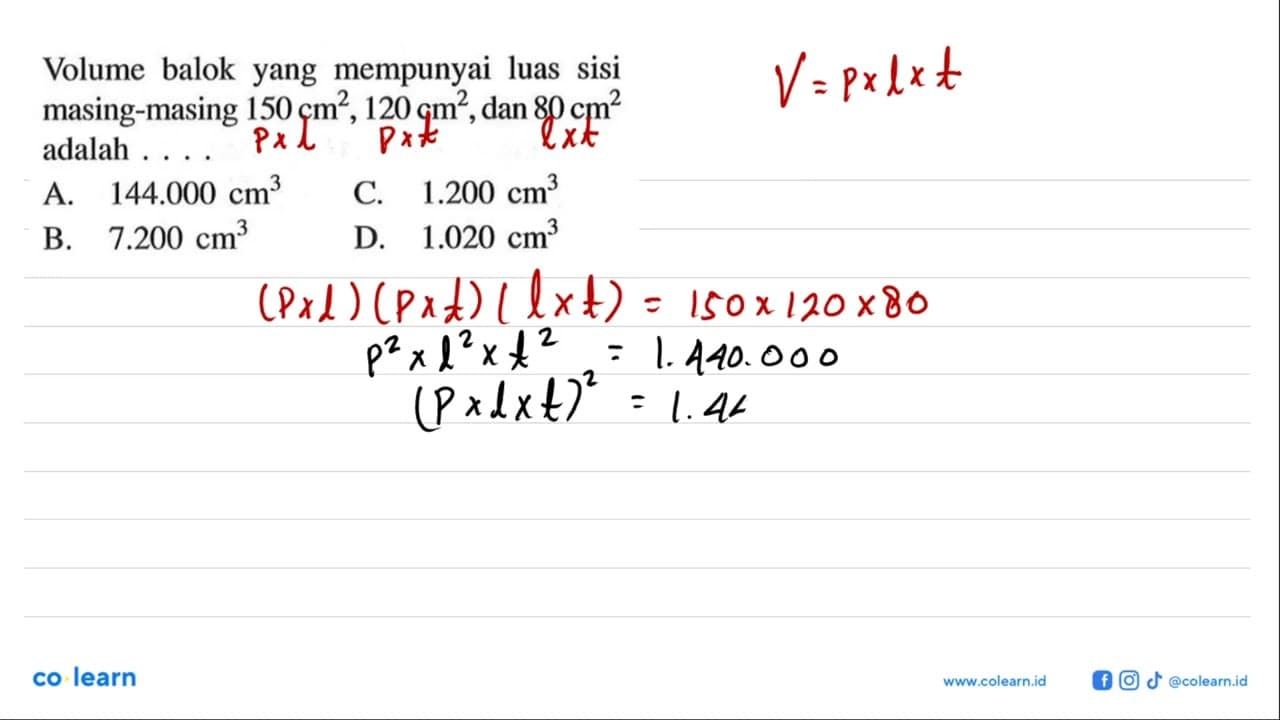 Volume balok yang mempunyai luas sisi
V = p x l x t
masing-masing 150 cm², 120 cm², dan 80 cm²
p x l p x t l x t
adalah . . . .
A. 144.000 cm³ C. 1.200 cm³
B. 7.200 cm³ D. 1.020 cm³
(p x l) (p x t) (l x t) = 150 x 120 x 80
p² x l² x t² = 1.440.000
(p x l x t)² = 1.4
co learn
www.colearn.id @colearn.id